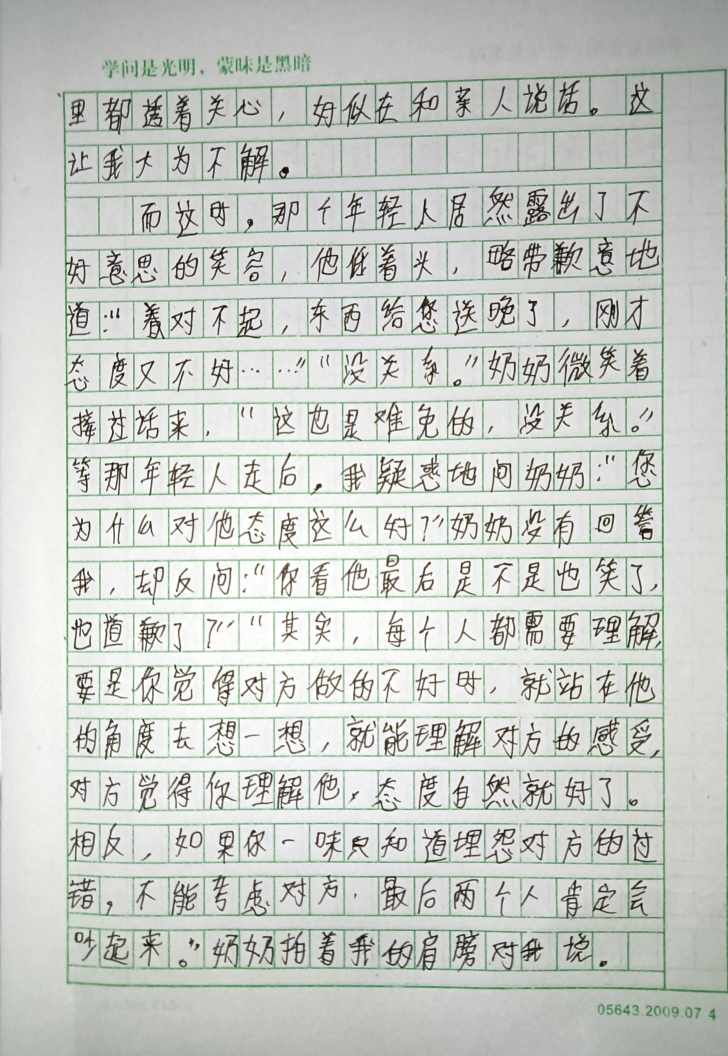 学问是光明，蒙昧是黑暗
里都透着关心，好似在和亲人说话。这
让我大为不解。
而这时，那个年轻人居然露出了不
好意思的笑容，他低着头，略带歉意地
道：“着对不起，东西给您送晚了，刚才
态度又不好……”“没关系。”奶奶微笑着
接过话来，“这也是难免的，没关系。”
等那年轻人走后，我疑惑地问奶奶：“您
为什么对他态度这么好？”奶奶没有回答
我，却反问：“你看他最后是不是也笑了，
也道歉了？”“其实，每个人都需要理解，
要是你觉得对方做的不好时，就站在他
的角度去想一想，就能理解对方的感受，
对方觉得你理解他，态度自然就好了。
相反，如果你一味只知道埋怨对方的过
错，不能考虑对方，最后两个人肯定会
吵起来。”奶奶拍着我的肩膀对我说。
05643.2009.07 4